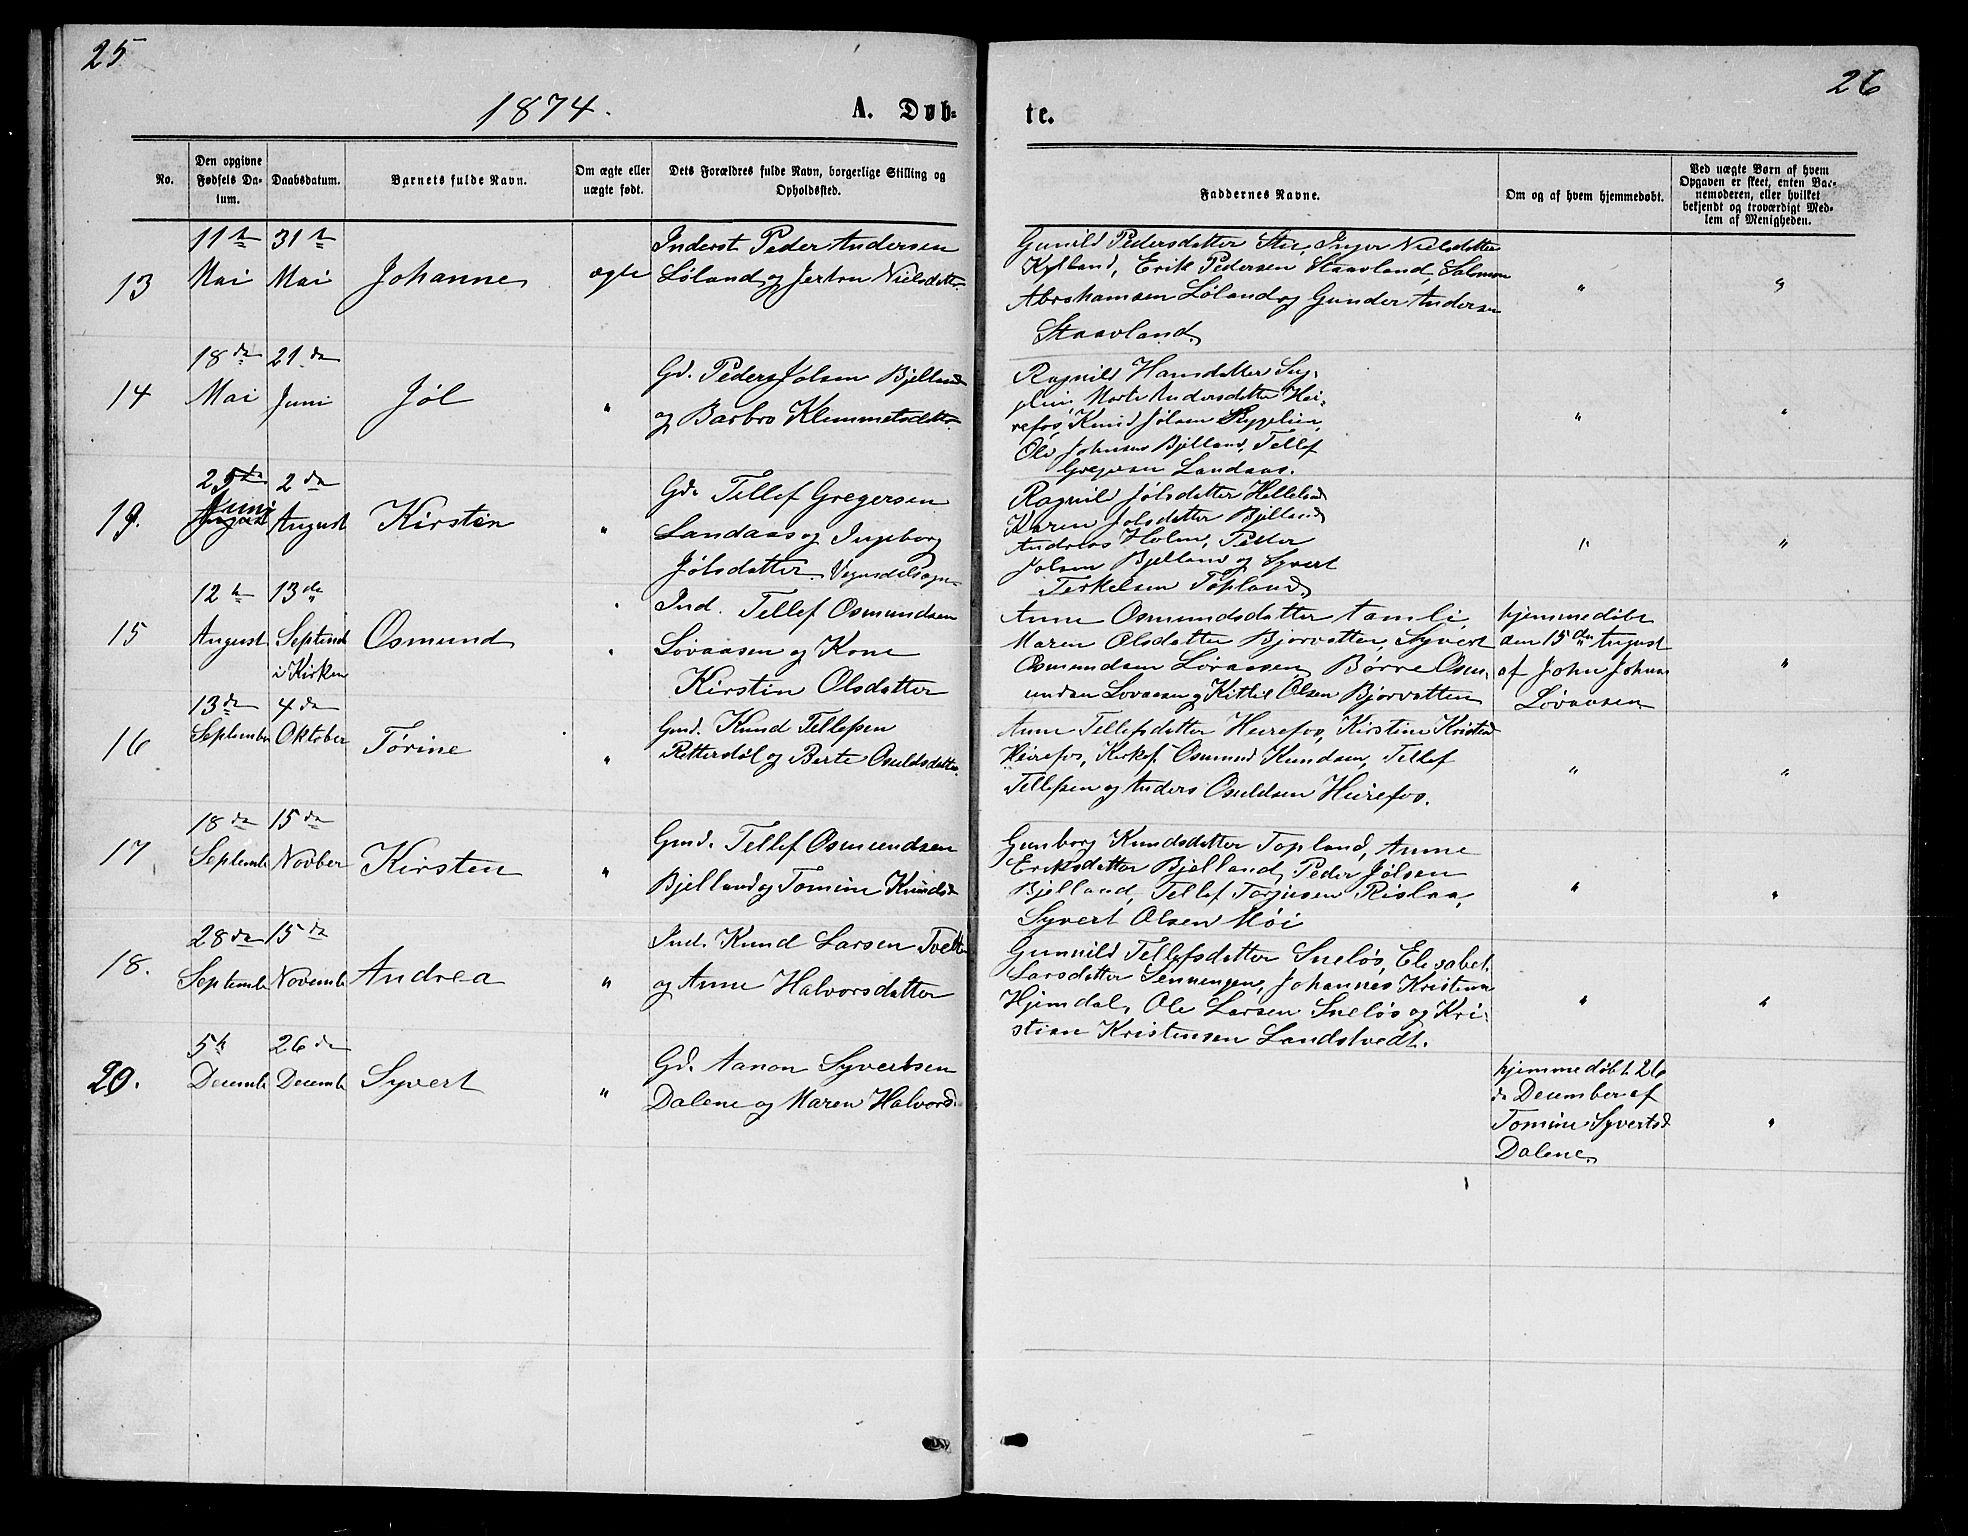 25
26
1874.
A. Døb-
te.
No.
Den opgivne Fødsels Da-tum.
Daabsdatum.
Barnets fulde Navn.
Om ægte eller uægte født.
Dets Forældres fulde Navn, borgerlige Stilling og Opholdssted.
Faddernes Navne.
Om og af hvem hjemmedøbt.
Ved uægte Børn af hvem Opgaven er skeet, enten Bar-nemoderen, eller hvilket bekjendt og troværdigt Med-lem af Menigheden.
13
11te Mai
31te Mai
Johanne
ægte
Inderst Peder Andersen
Løland og Jertru Nielsdatter
Gunild Pedersdatter Stie, Inger Nielsdatter
Kylland, Erik Pedersen Staavland, Salomon
Abrahamsen Løland og Gunder Andersen
Staavland.
"
"
14
18de Mai
21de Juni
Jøl
"
Gd. Peder Jølsen Bjelland
og Barbro Klemmetsdatter
Ragnild Hansdatter Syg-
plien, Marte Andersdatter Hei-
refos, Knud Jølsen Rygelien,
Ole Johnsen Bjelland, Tellef
Gregersen Landaas.
"
"
19.
25te Juni
2den August
Kirsten
"
Gd. Tellef Gregersen
Landaas og Ingeborg
Jølsdatter Vegusdalsogn
Ragnild Jølsdatter Helleland
Karen Jølsdatter Bjelland
Andreas Holm, Peder
Jølsen Bjelland og Syvert
Terkelsen Topland
"
"
15
12te August
13de Septemb i Kirken
Osmund
"
Ind. Tellef Osmundsen
Løvaasen og Kone
Kirstin Olsdatter
Anne Osmundsdatter Tamli
Maren Olsdatter Bjorvatten, Syvert
Osmundsen Løvaasen, Børre Osm-
undsen Lovaasen og Kittil Olsen Bjorvatten
hjemmedøbt
den 15de August
af John Johns
Løvaasen
"
16
13de September
4de Oktober
Tørine
"
Gmd. Knud Tellefsen
Rettersdøl og Berte Osuldsdatter
Anne Tellefsdatter Heirefos, Kirstine Kristend
Heirefos, Kirkef. Osmund Knudsen, Tellef
Tellefsen og Anders Osuldsen Heirefos.
"
"
17
18de Septemb
15de Novber
Kirsten
"
Gmd. Tellef Osmundsen
Bjelland og Tomine Knudsd
Gunborg Knudsdatter Topland, Anne
Eriksdatter Bjelland, Peder Jølsen
Bjelland, Tellef Torjusen Rislaa,
Syvert Olsen Møi
"
"
18.
28de Septemb
15de Novemb
Andrea
"
Ind. Knud Larsen Tveite
og Anne Halvorsdatter
Gunnild Tellefsdatter Sneløs, Elisabet
Larsdatter Senningen, Johannes Kristensen
Hjemdal, Ole Larsen Sneløs og Kri-
stian Kristensen Landstvedt.
"
"
20.
5te Decemb
26de Decemb
Syvert
"
Gd. Aanon Syvertsen
Dalene og Maren Halvorsd.
hjemmedøbt 26
de December af
Tomine Syvertsd
Dalene.
"